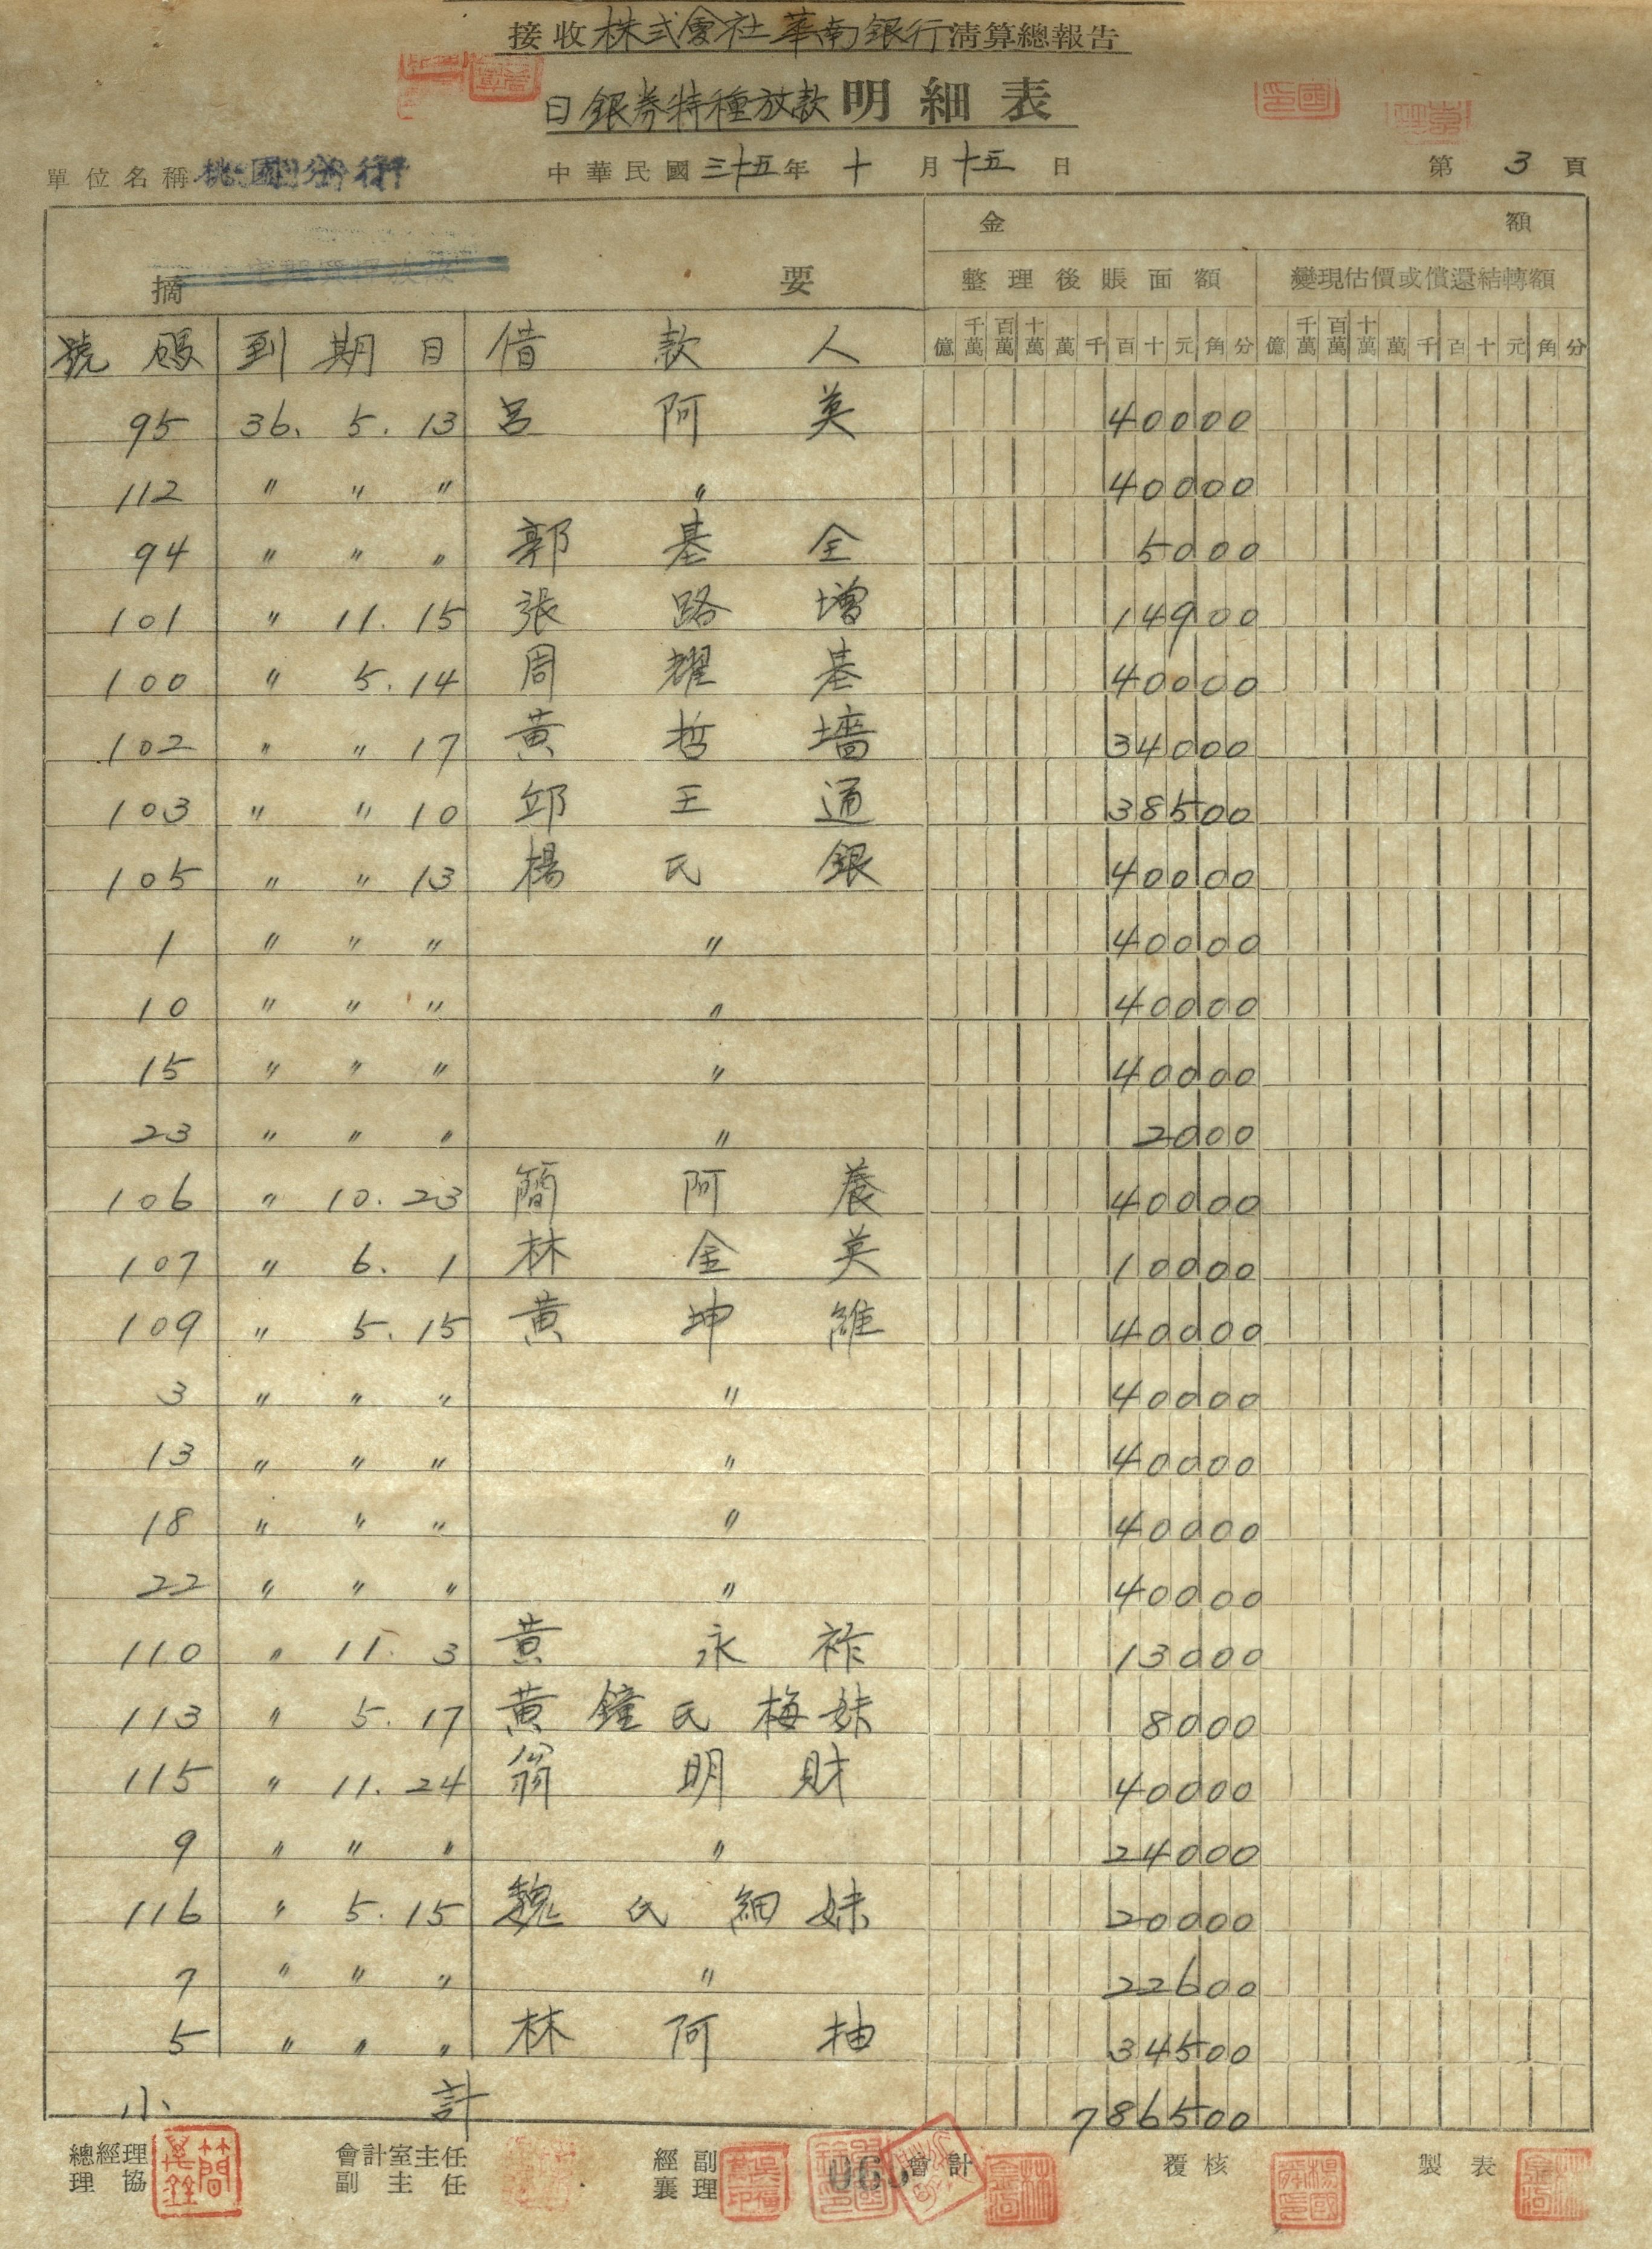 接收株式會社華南銀行清算總報告
日銀券特種放款明細表
單位名稱桃園分行 中華民國三十五年十月十五日 第3頁
金額
摘要 整理後賬面額 變現估價或償還結轉額
億 千萬 百萬 十萬 萬 千 百 十 元 角 分 億 千萬 百萬 十萬 萬 千 百 十 元 角 分
號碼 到期日 借款人
95 36. 5. 13 呂阿英 40000
112 〃 〃 〃 〃 40000
94 〃 〃 〃 郭基全 5000
101 〃 11. 15 張路增 14900
100 〃 5. 14 周耀基 40000
102 〃 〃 17 黃哲墻 34000
103 〃 〃 10 邱王通 38500
105 〃 〃 13 楊氏銀 40000
1 〃 〃 〃 〃 40000
10 〃 〃 〃 〃 40000
15 〃 〃 〃 〃 40000
23 〃 〃 〃 〃 2000
106 〃 10. 23 簡阿養 40000
107 〃 6. 1 林金英 10000
109 〃 5. 15 黃坤維 40000
3 〃 〃 〃 〃 40000
13 〃 〃 〃 〃 40000
18 〃 〃 〃 〃 40000
22 〃 〃 〃 〃 40000
110 〃 11. 3 黃永祚 13000
113 〃 5. 17 黃鐘氏梅妹 8000
115 〃 11. 24 翁明財 40000
9 〃 〃 〃 〃 24000
116 〃 5. 15 魏氏細妹 20000
7 〃 〃 〃 〃 22600
5 〃 〃 〃 林阿抽 34500
小計 786500
總經理 會計室主任 經副 會計 覆核 製表
理協 副主任 襄理
065